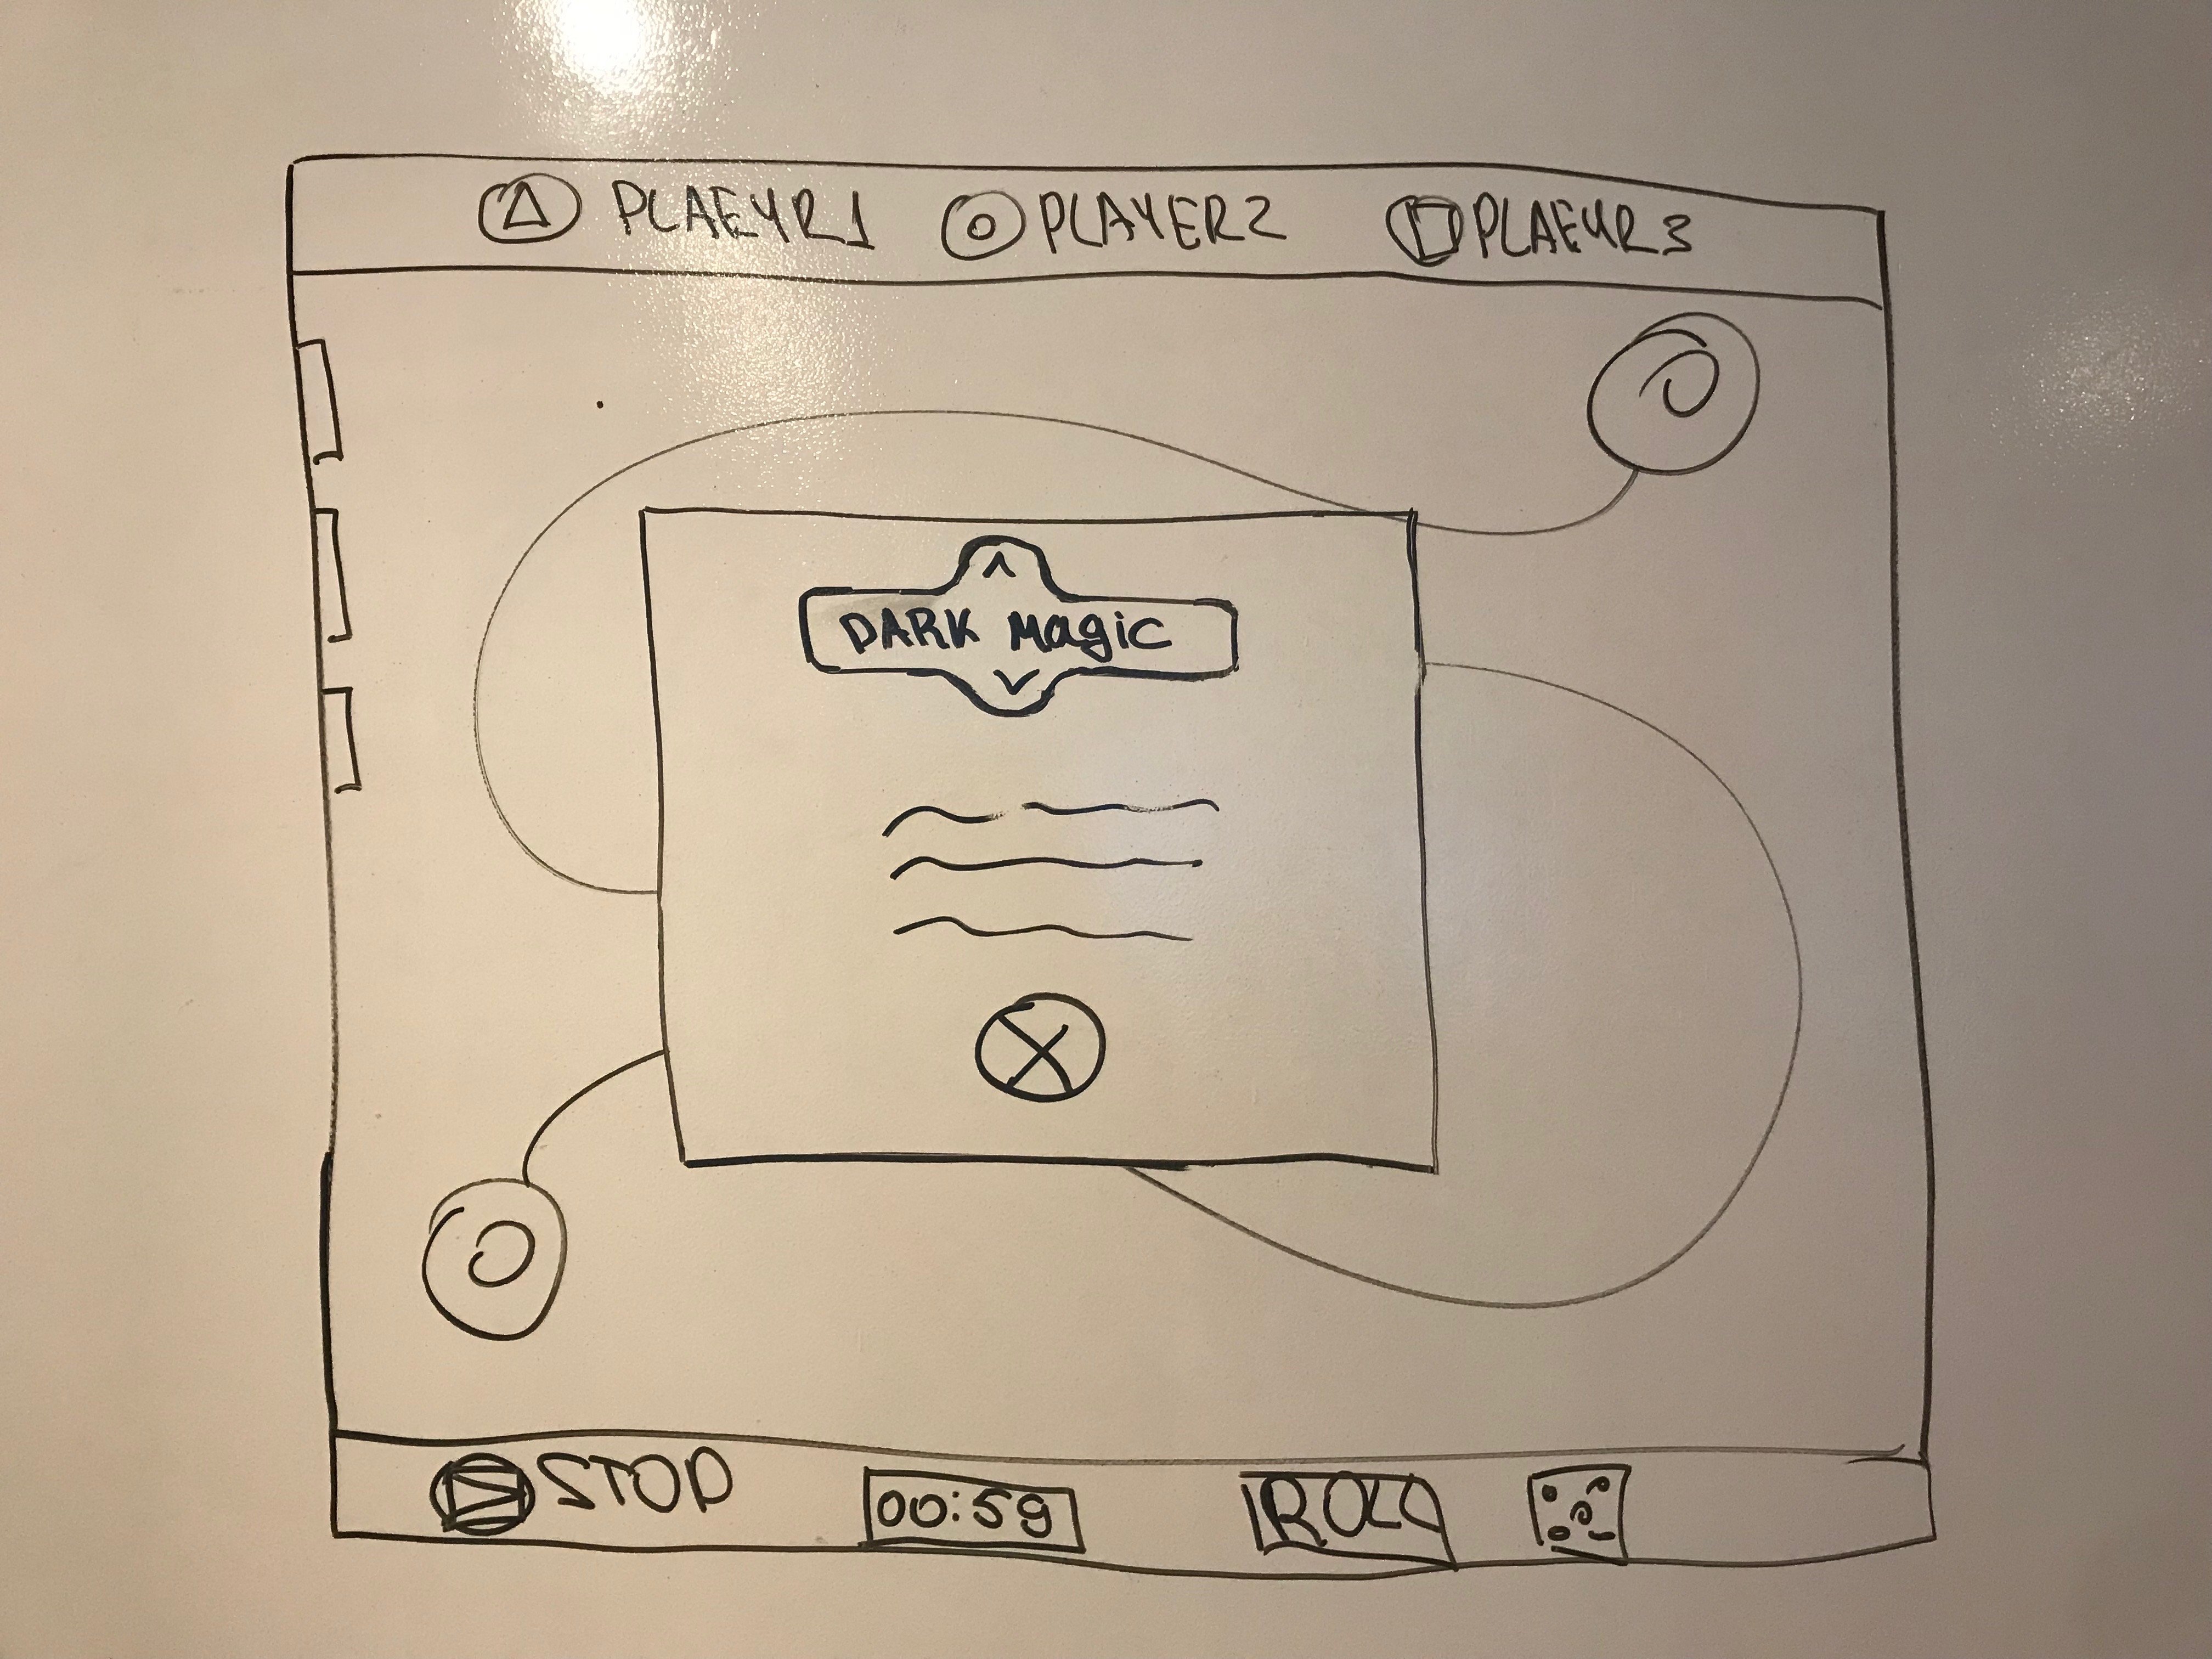 PLAEYR1 PLAYER2 PLAEYR3
DARK Magic
STOP 00:59 ROLL